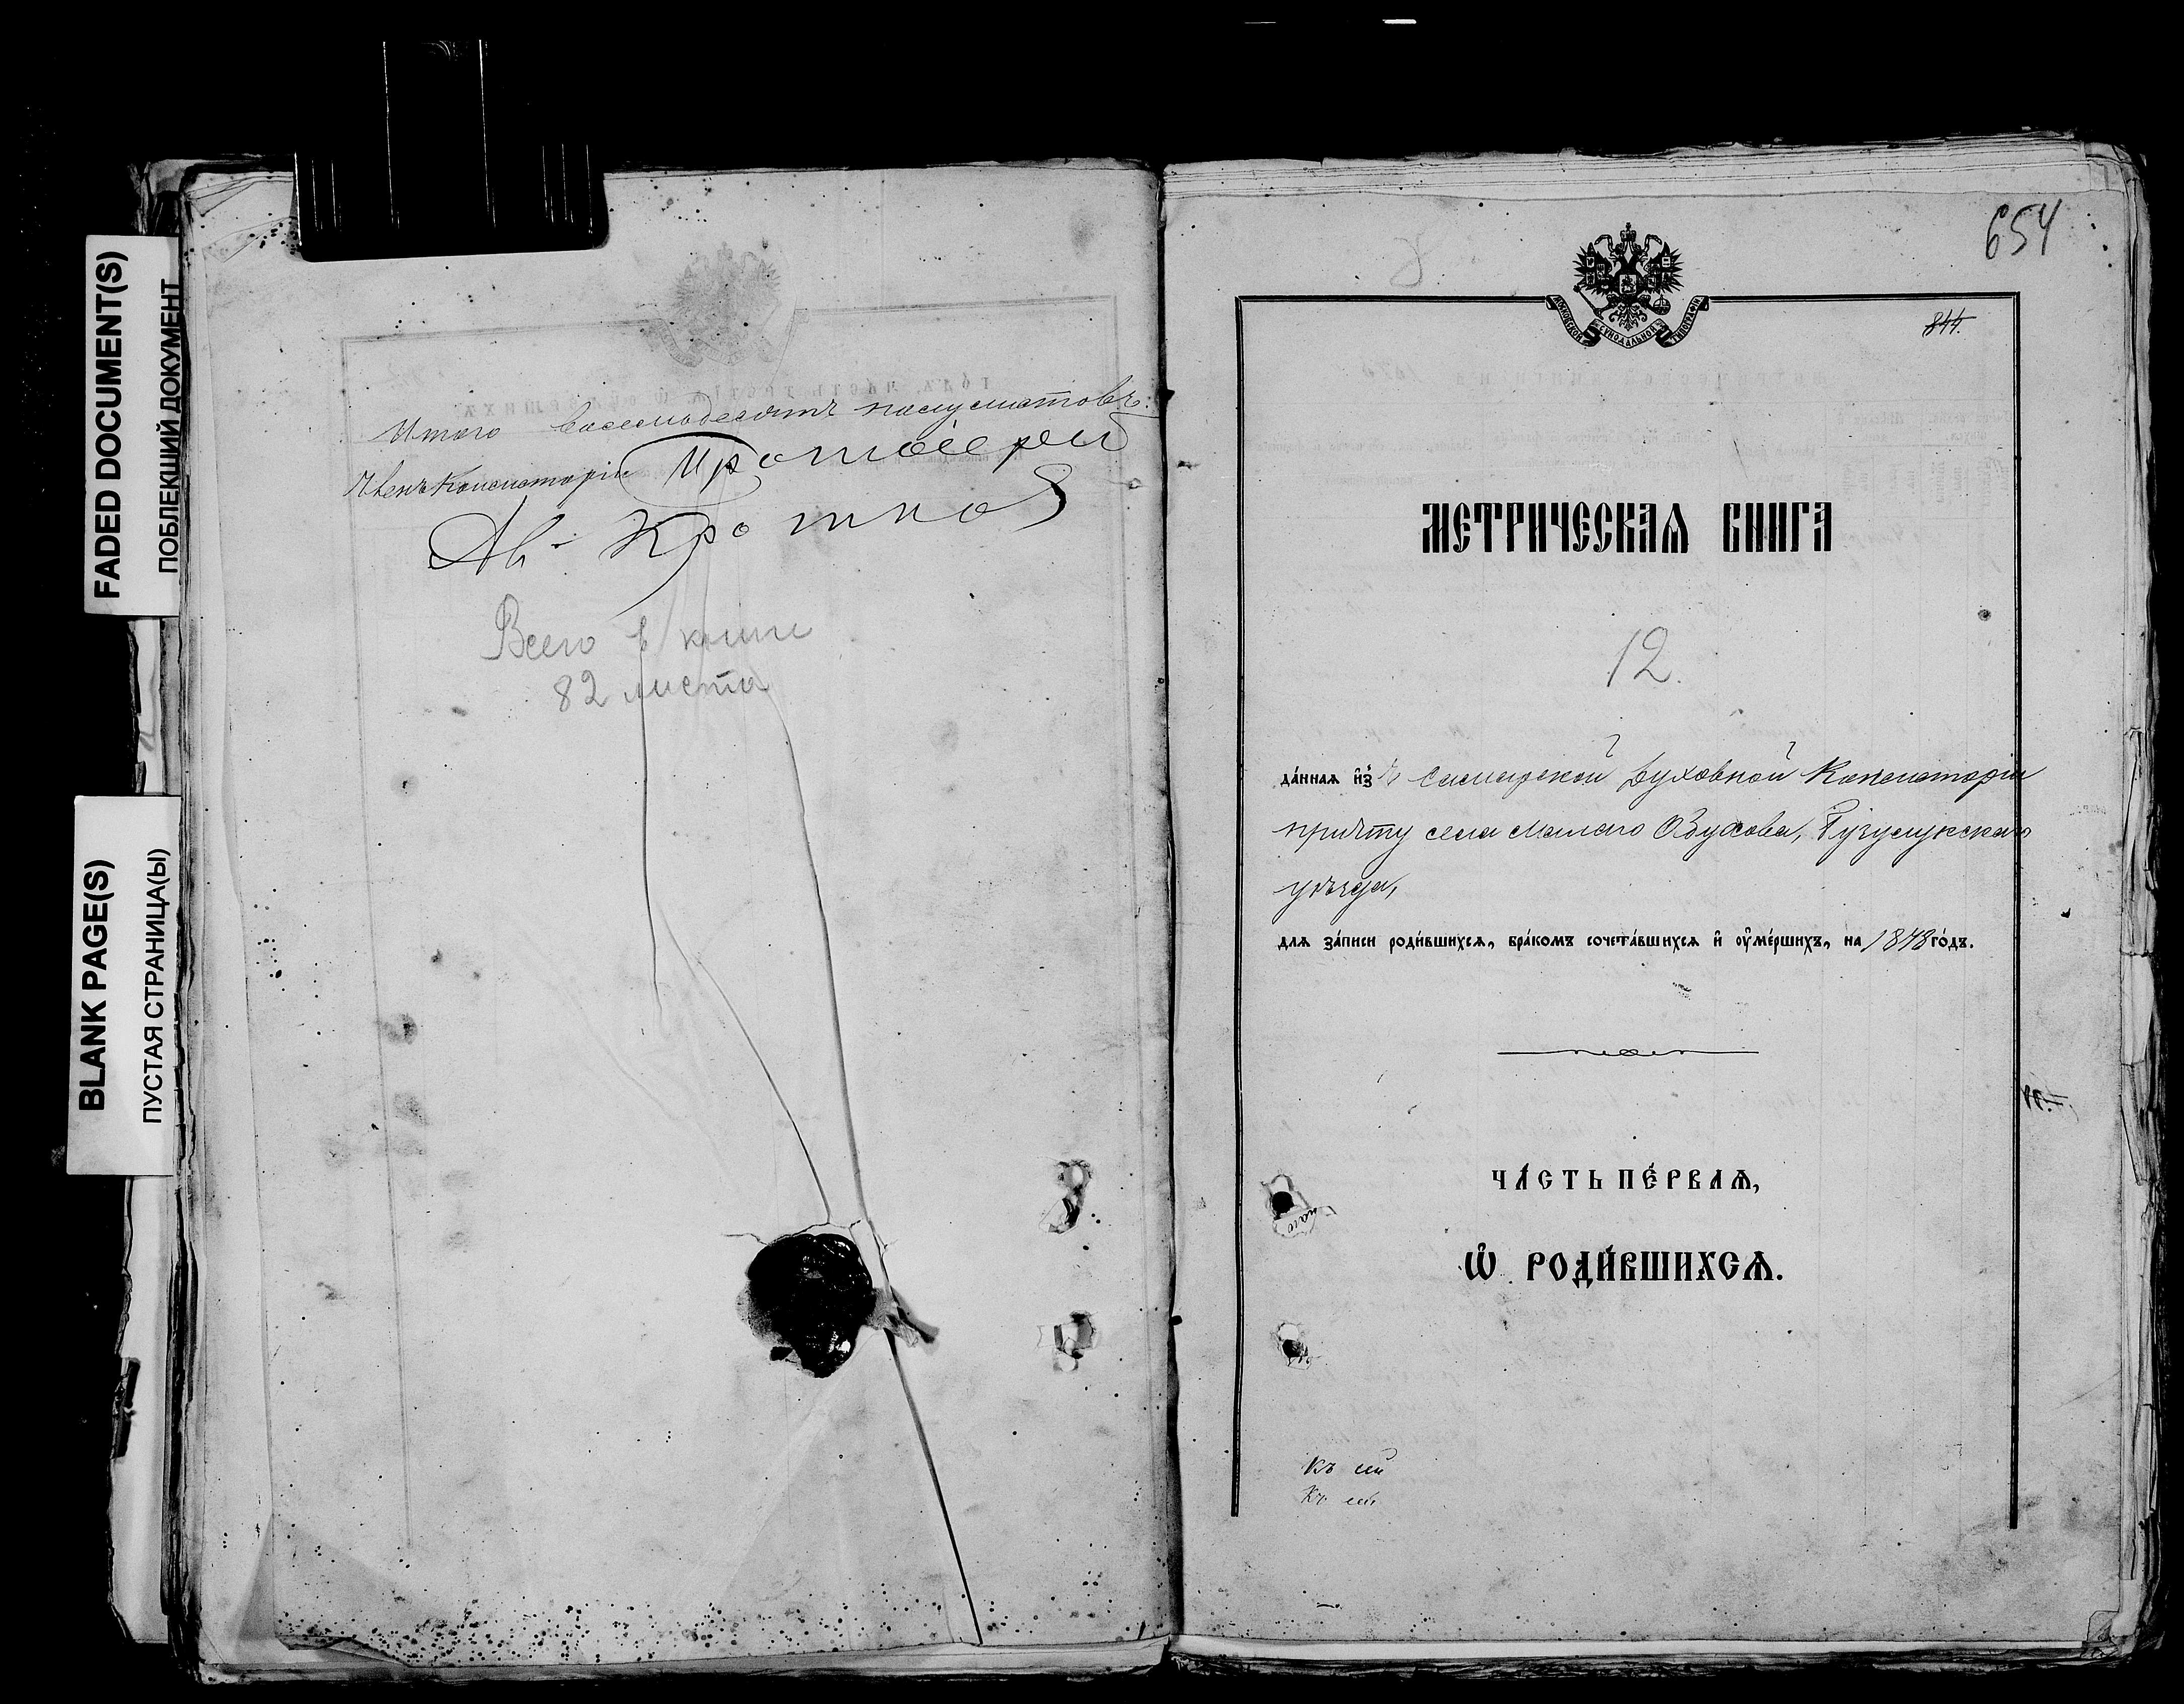 FADED DOCUMENT(S)
ПОБЛЕКШИЙ ДОКУМЕНТ
BLANK PAGE(S)
ПУСТАЯ СТРАНИЦА(Ы)
Итого восемьдесятъ полулистовъ.
Членъ Консисторіи Протоіерей
Ав. Кротков
Всего в книге
82 листа
654
844.
МОСКОВСКОЙ СѴНОДАЛЬНОЙ ТИПОГРАФІИ
МЕТРИЧЕСКАѦ КНИГА
12.
да́ннаѧ и҆з Самарской Духовной Консисторіи
причту села Малаго Обухова, Бузулукскаго
уѣзда,
длѧ за́писи роди́вшихсѧ, бра́комъ сочета́вшихсѧ и҆ ᲂу҆ме́ршихъ, на го́дъ.
ЧА́СТЬ ПЕ́РВАѦ,
Ѽ РОДИ́ВШИХСѦ.